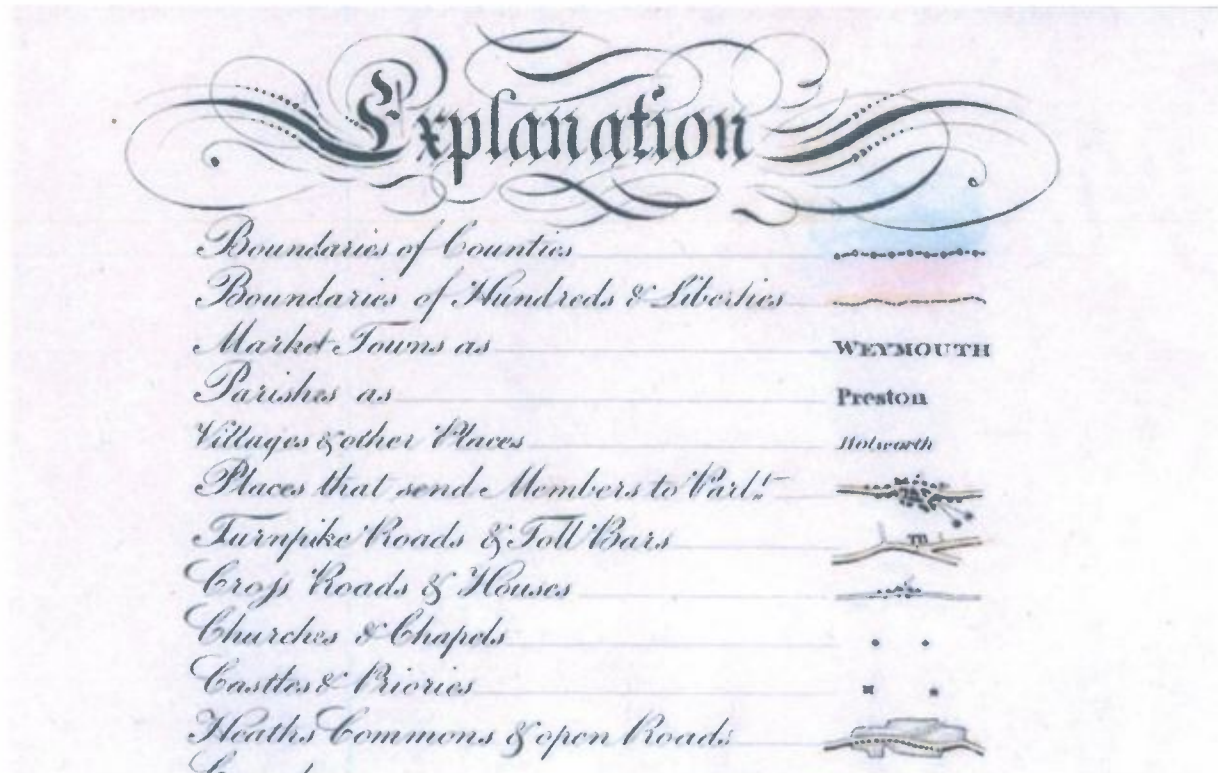 Explanation
Boundaries of Counties
Boundaries of Hundreds & Liberties
Market Towns as WEYMOUTH
Parishes as Preston
Villages & other Places Holworth
Places that send Members to Parlt.
Turnpike Roads & Toll Bars TB
Cross Roads & Houses
Churches & Chapels
Castles & Priories
Heaths Commons & open Roads